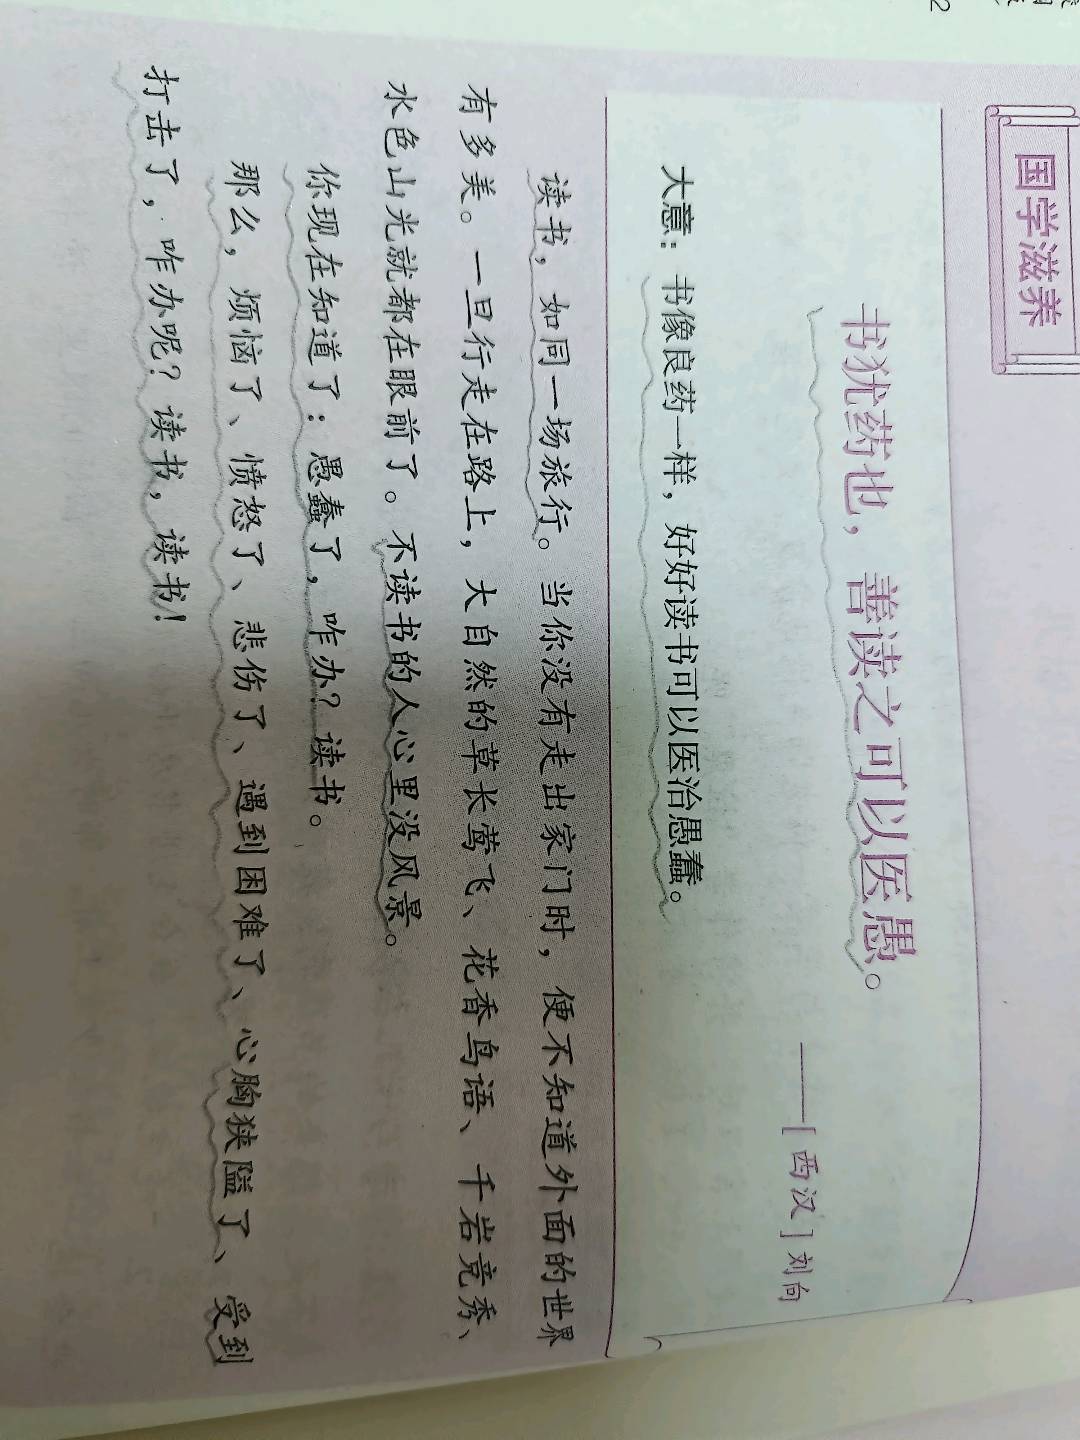 国学滋养
书犹药也，善读之可以医愚。
——[西汉]刘向
大意：书像良药一样，好好读书可以医治愚蠢。
读书，如同一场旅行。当你没有走出家门时，便不知道外面的世界
有多美。一旦行走在路上，大自然的草长莺飞、花香鸟语、千岩竞秀、
水色山光就都在眼前了。不读书的人心里没风景。
你现在知道了：愚蠢了，咋办？读书。
那么，烦恼了、愤怒了、悲伤了、遇到困难了、心胸狭隘了、受到
打击了，咋办呢？读书，读书！